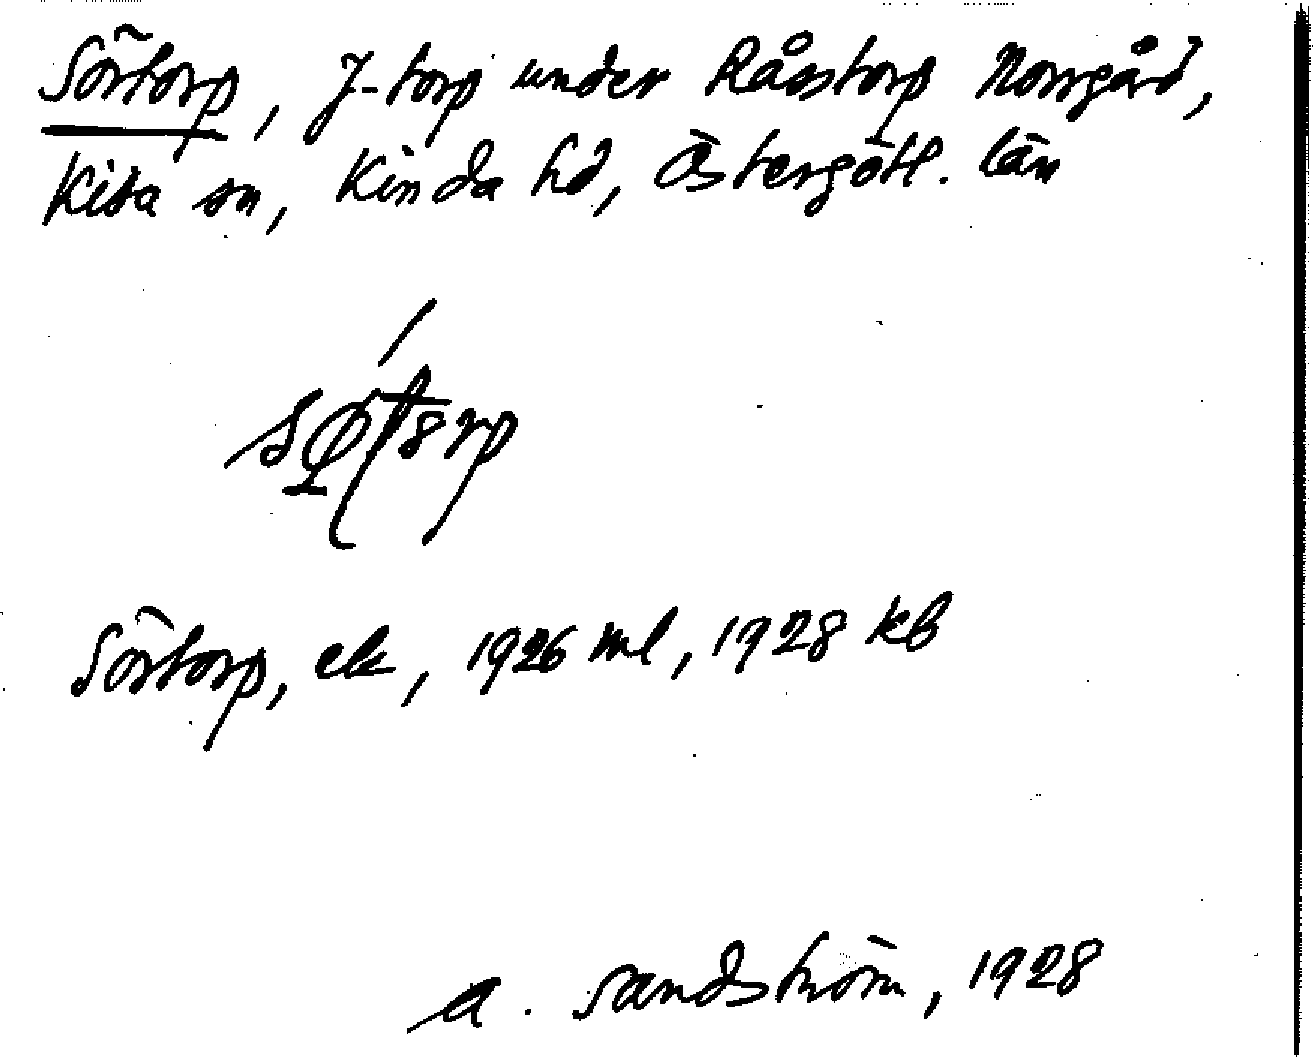 Sörtorp, J-torp under Råstorp Norrgård,
Kisa sn, Kinda hd, Östergötl. län
Sörtorp, ek, 1926 ml, 1928 kb
A. Sandström, 1928